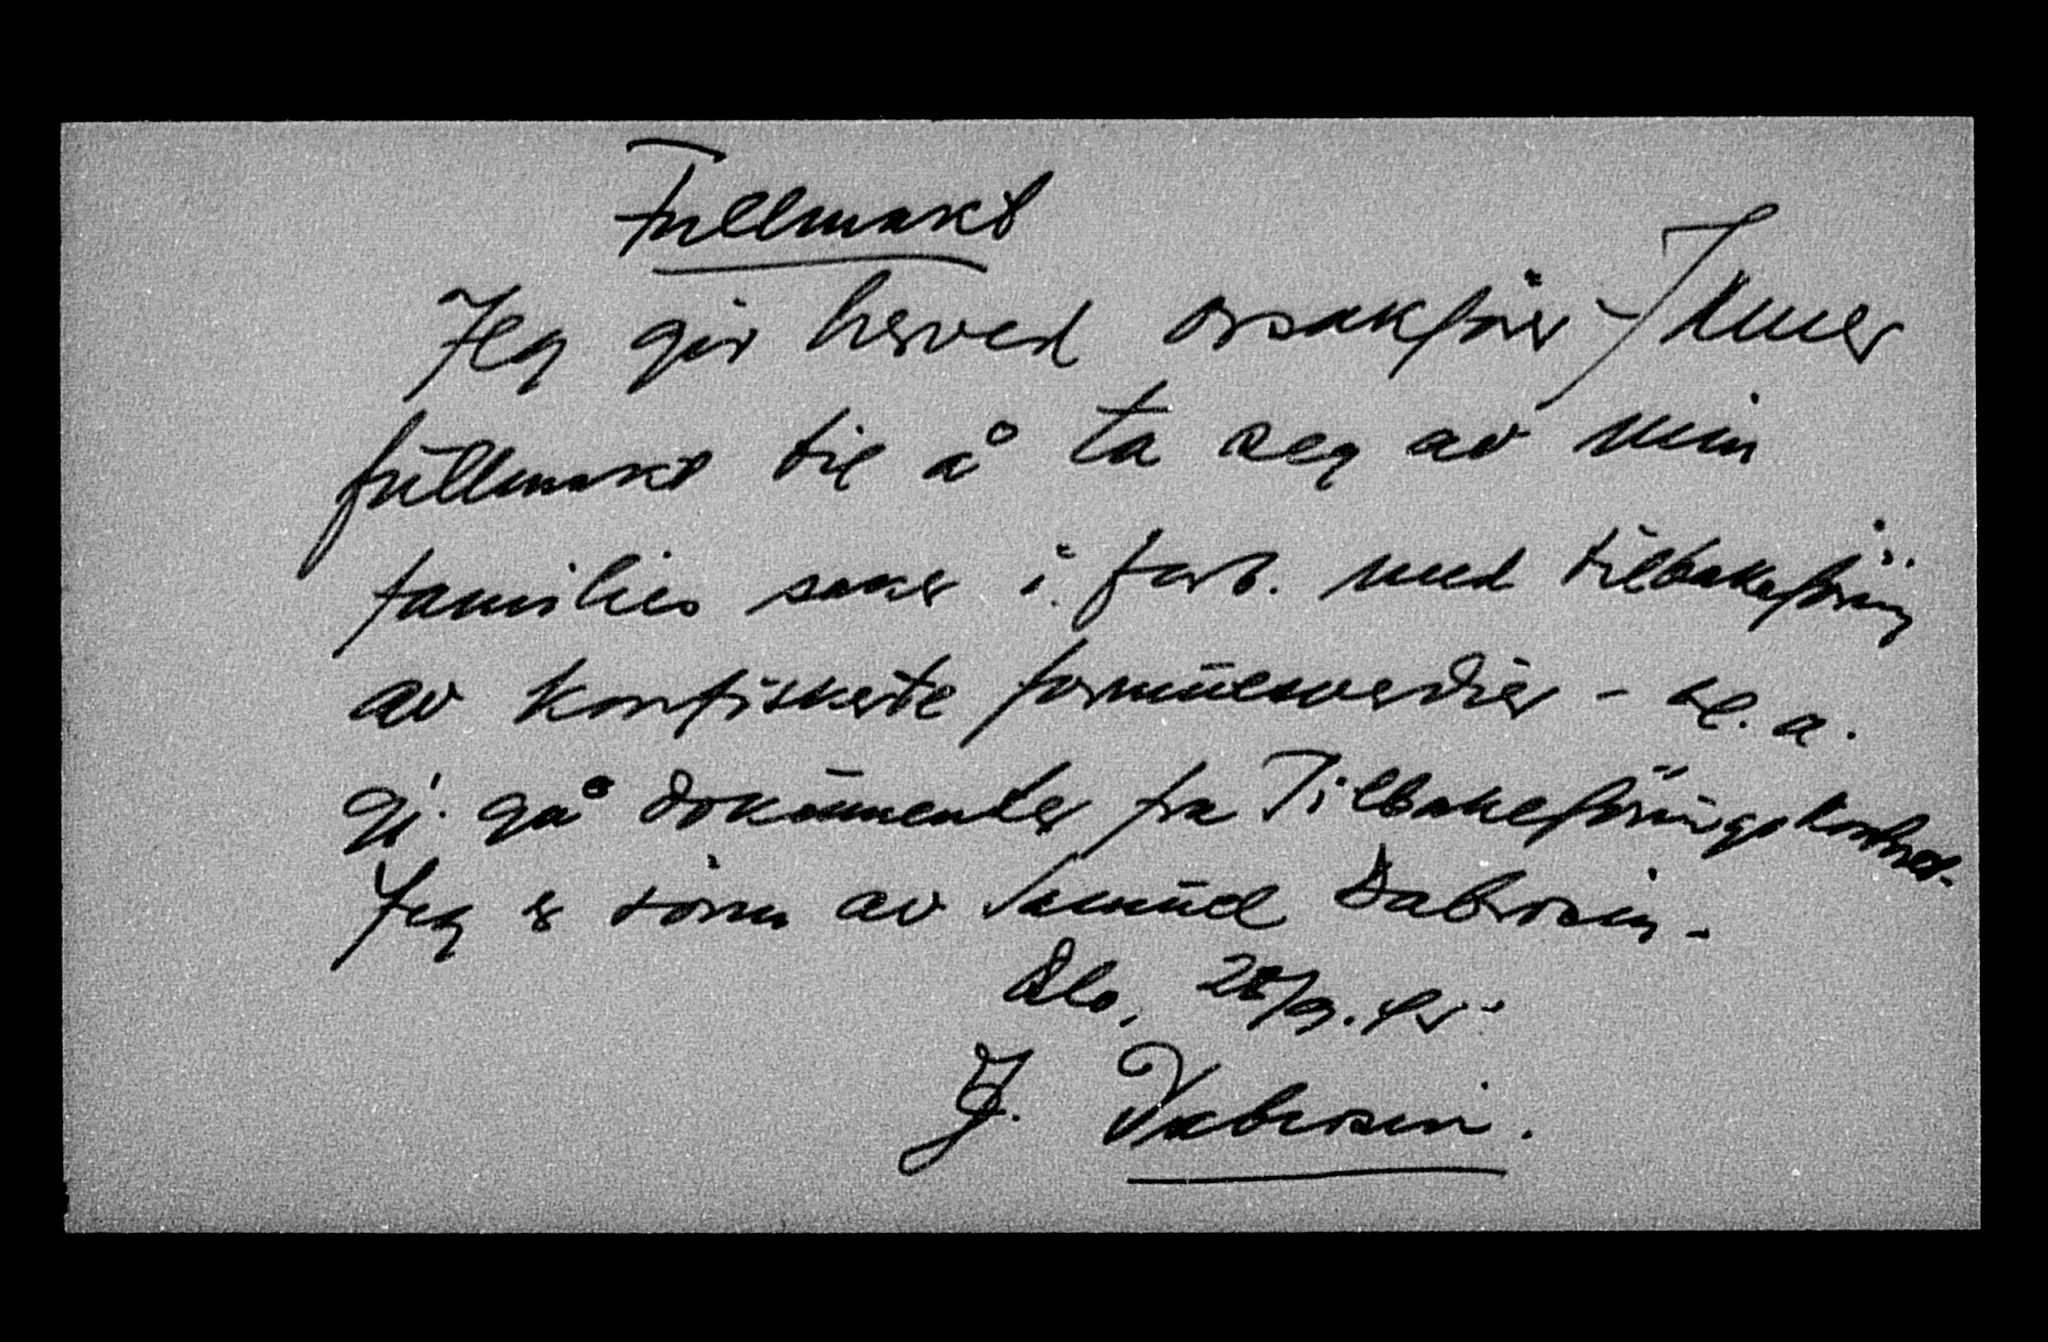 Fullmakt
Jeg gir herved orsakfører
fullmakt til å ta seg av min
families saker i forb. med tilbakeføring
av konfiskerte formuesverdier - bl. a.
gj. gå dokumenter fra Tilbakeføringskontoret.
Jeg er sönn av Samuel Dabrosin.
Oslo, 28/9.45.
J. Dabrosin.